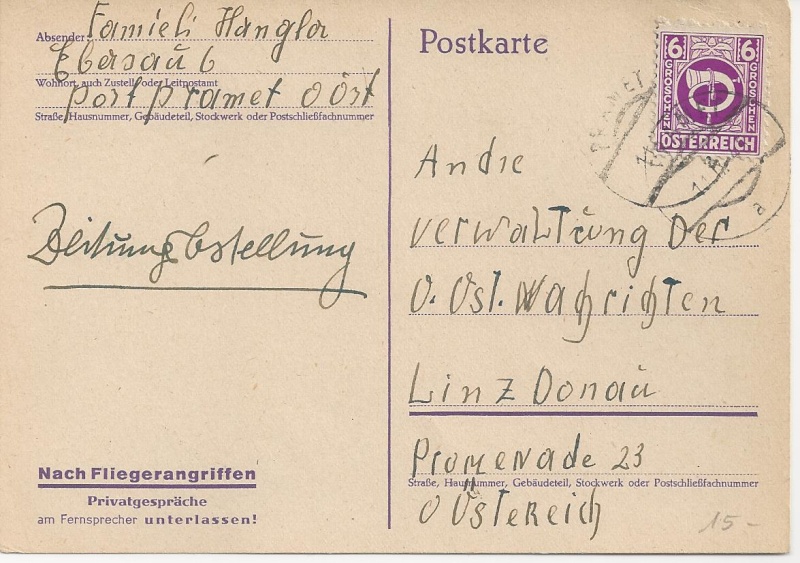 Absender: Familie Hangler
Ebersau 6
Wohnort, auch Zustell- oder Leitpostamt
post pramet O Öst
Straße, Hausnummer, Gebäudeteil, Stockwerk oder Postschließfachnummer
Zeitungsbstellung
Nach Fliegerangriffen
Privatgespräche
am Fernsprecher unterlassen!
Postkarte
6 6
GROSCHEN GROSCHEN
ÖSTERREICH
PRAMET
a
An die
verwaltung Der
O. Öst. Nachrichten
Linz Donau
Promenade 23
Straße, Hausnummer, Gebäudeteil, Stockwerk oder Postschließfachnummer
O Östereich
15-